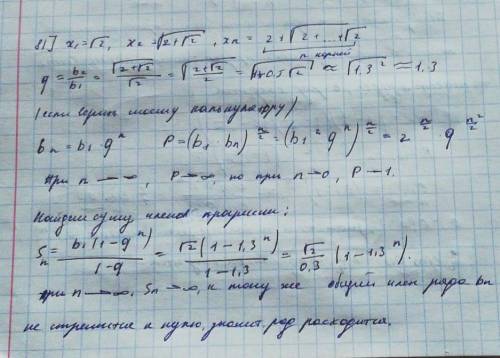 81] x₁=√2, x₂=√(2+√2), xₙ = 2+√(2+...+√2)
n корней
q = b₂/b₁ = √(2+√2)/√2 = √((2+√2)/2) = √(1+0,5√2) ≈ √(1,3²) ≈ 1,3
(если верить моему калькулятору)
bₙ = b₁·qⁿ P = (b₁·bₙ)^(n/2) = (b₁² qⁿ)^(n/2) = 2^(n/2) · q^(n²/2)
при n → ∞, P→∞, но при n→0, P→1.
Найдем сумму членов прогрессии:
Sₙ = b₁(1-qⁿ)/(1-q) = √2(1-1,3ⁿ)/(1-1,3) = √2/0,3 (1-1,3ⁿ).
при n → ∞, Sₙ→∞, к тому же общий член ряда bₙ
не стремится к нулю, значит, ряд расходится.